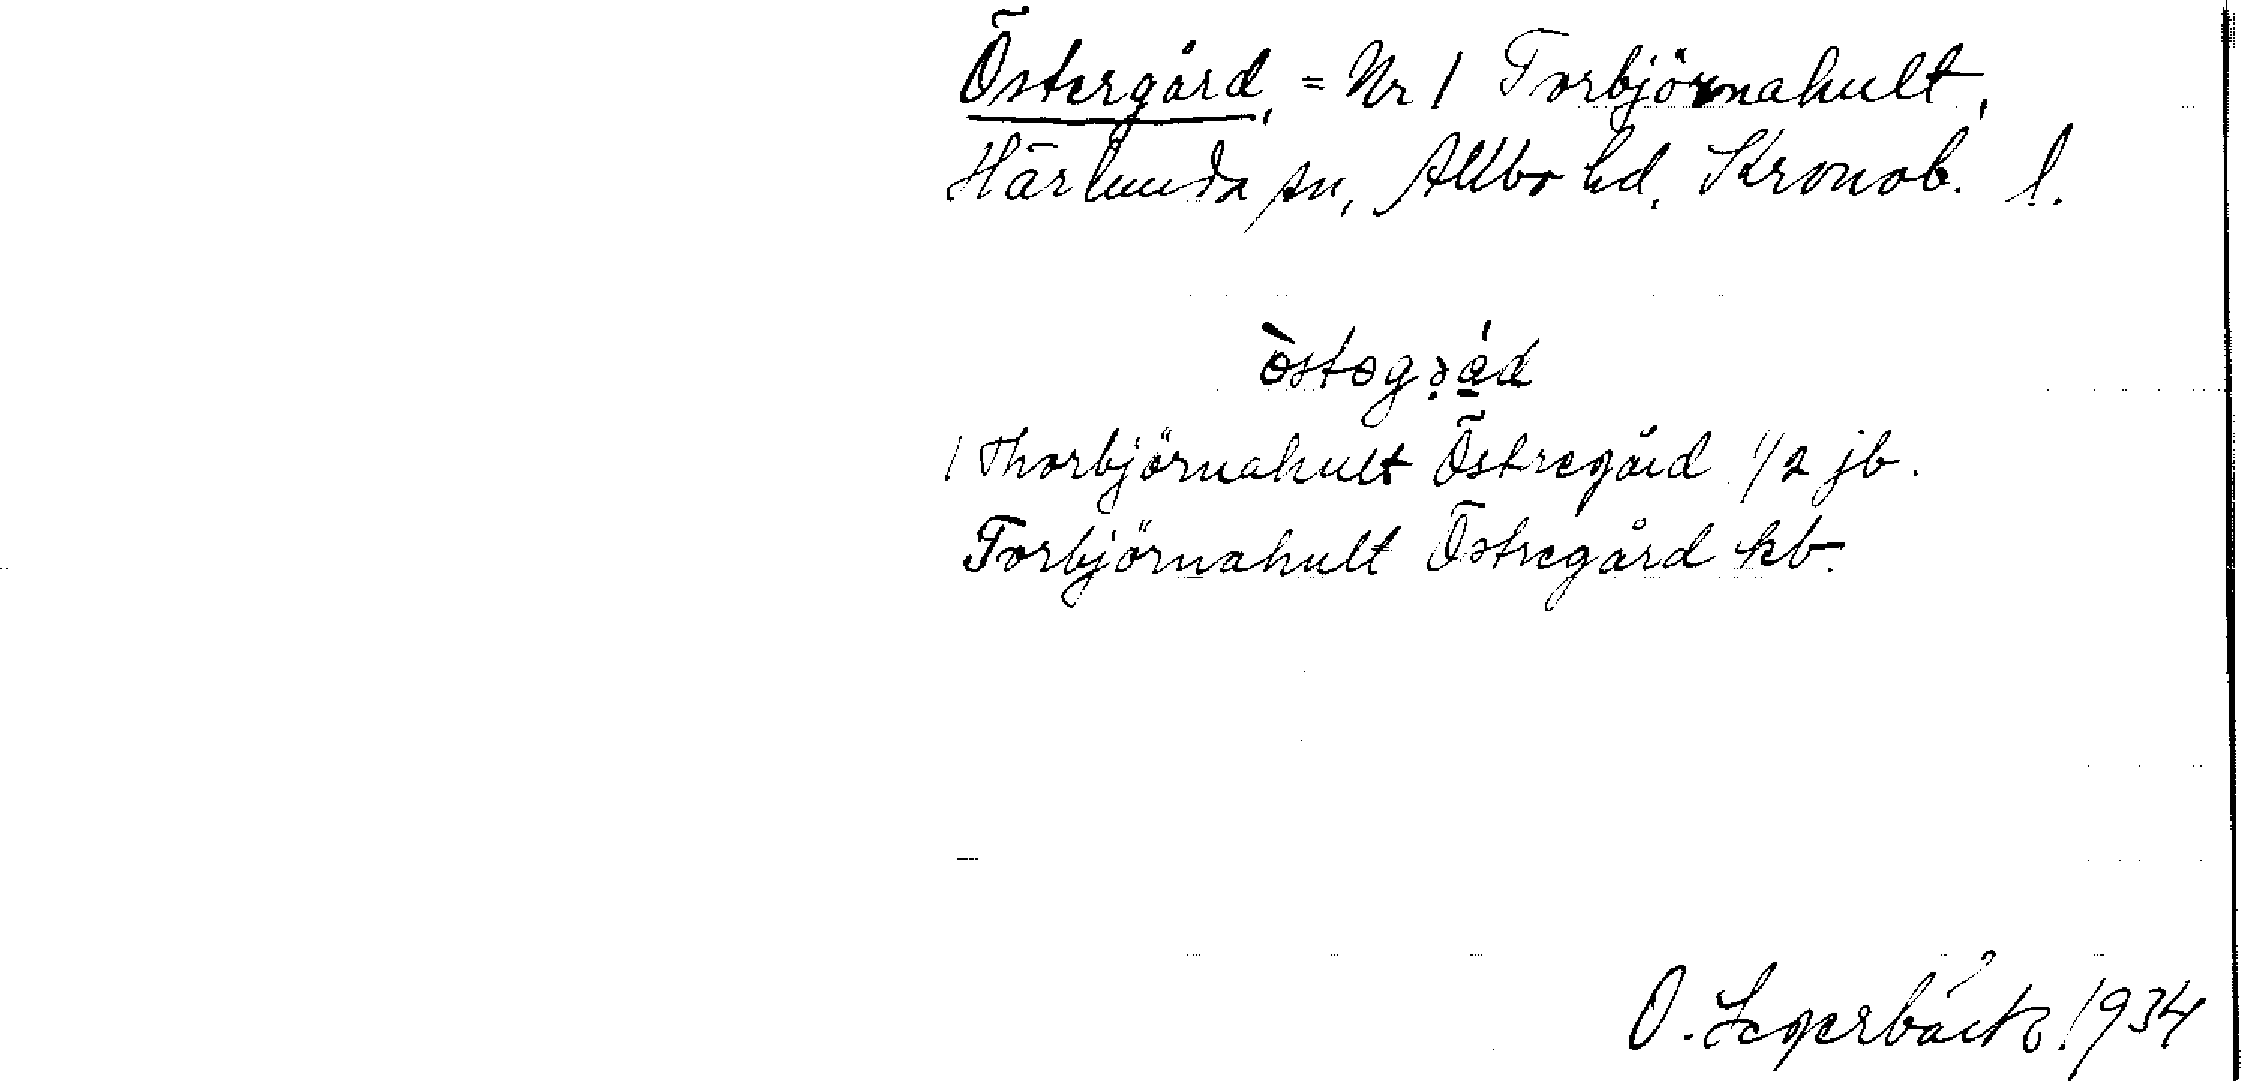 Östergård, = Nr 1 Torbjörnahult,
Härlunda sn, Allbo hd, Kronob. l.
1 Thorbjörnahult Östregård 1/2 jb.
Torbjörnahult Östregård kb.
O. 1934